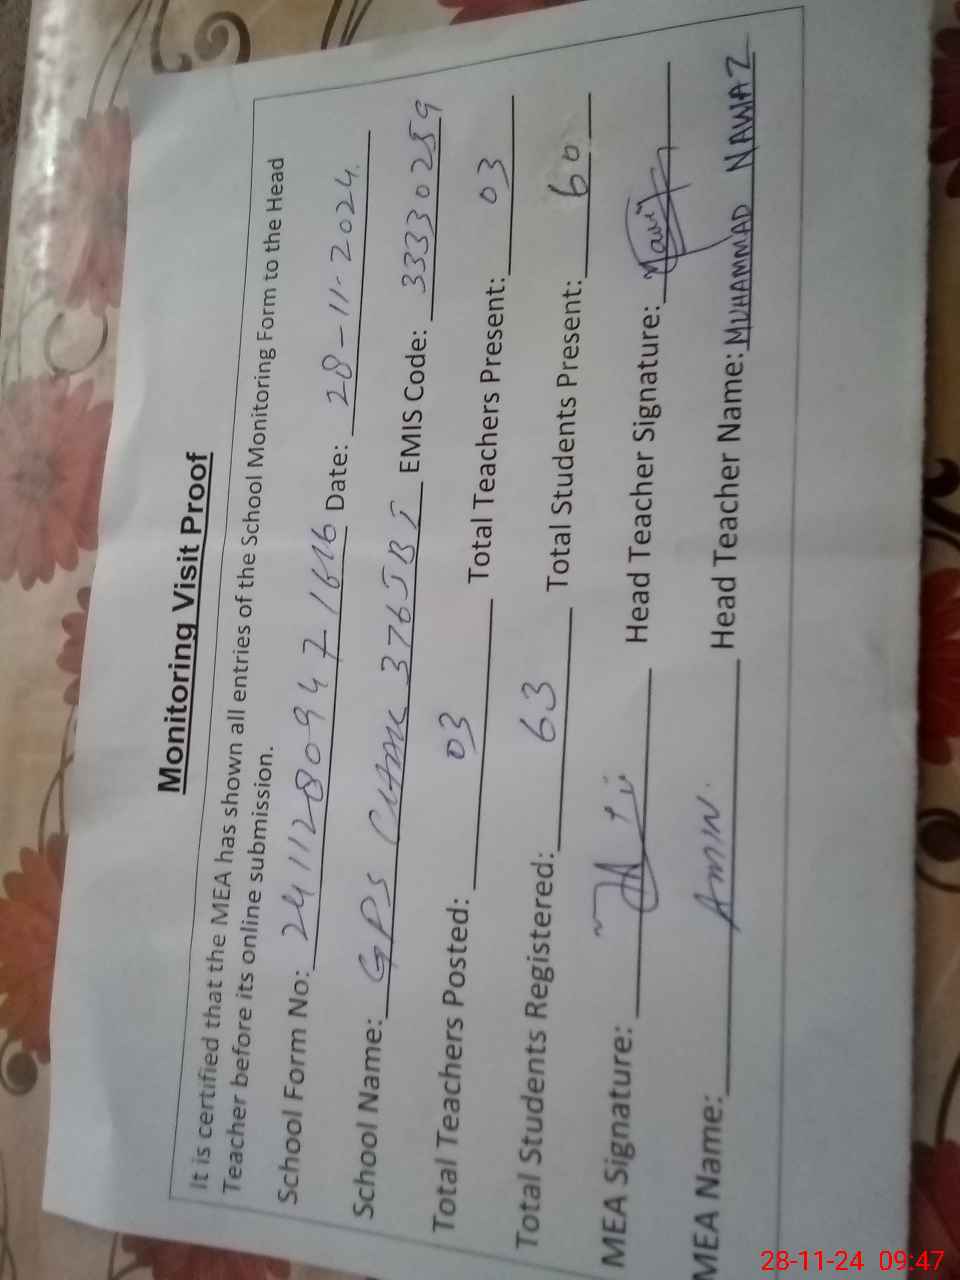 Monitoring Visit Proof
It is certified that the MEA has shown all entries of the School Monitoring Form to the Head
Teacher before its online submission.
School Form No: 24112809471616 Date: 28-11-2024
School Name: GPS CHAK 376JB I EMIS Code: 33330259
Total Teachers Posted: 03 Total Teachers Present: 03
Total Students Registered: 63 Total Students Present: 60
MEA Signature: Head Teacher Signature:
MEA Name: AMIN. Head Teacher Name: MUHAMMAD NAWAZ
28-11-24 09:47